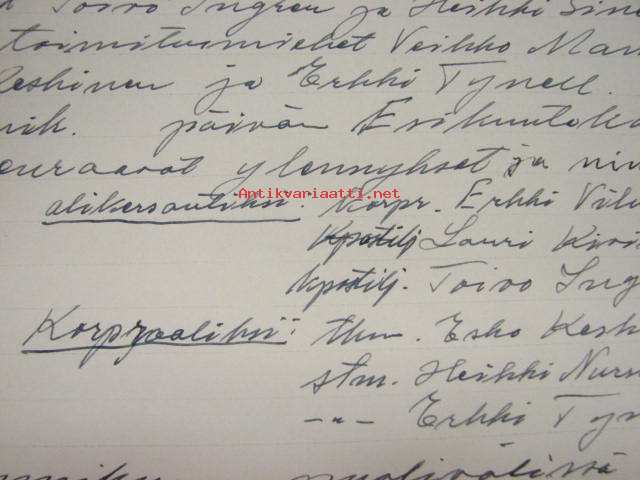 Toivo Ingren ja Heikki Sine
toimitusmiehet Veikko Man
eskinen ja Erkki Tynell.
nik. päivän Esikuntakä
euraavat ylennykset ja nim
Antikvariaatti.net
alikersantiksi: Korpr. Erkki Vilu
kpstilj Lauri Kivi
kpstilj. Toivo Ing
Korpraaliksi: tkm. Esko Kesk
stm. Heikki Nurm
-"- Erkki Tyn
puolivälissä